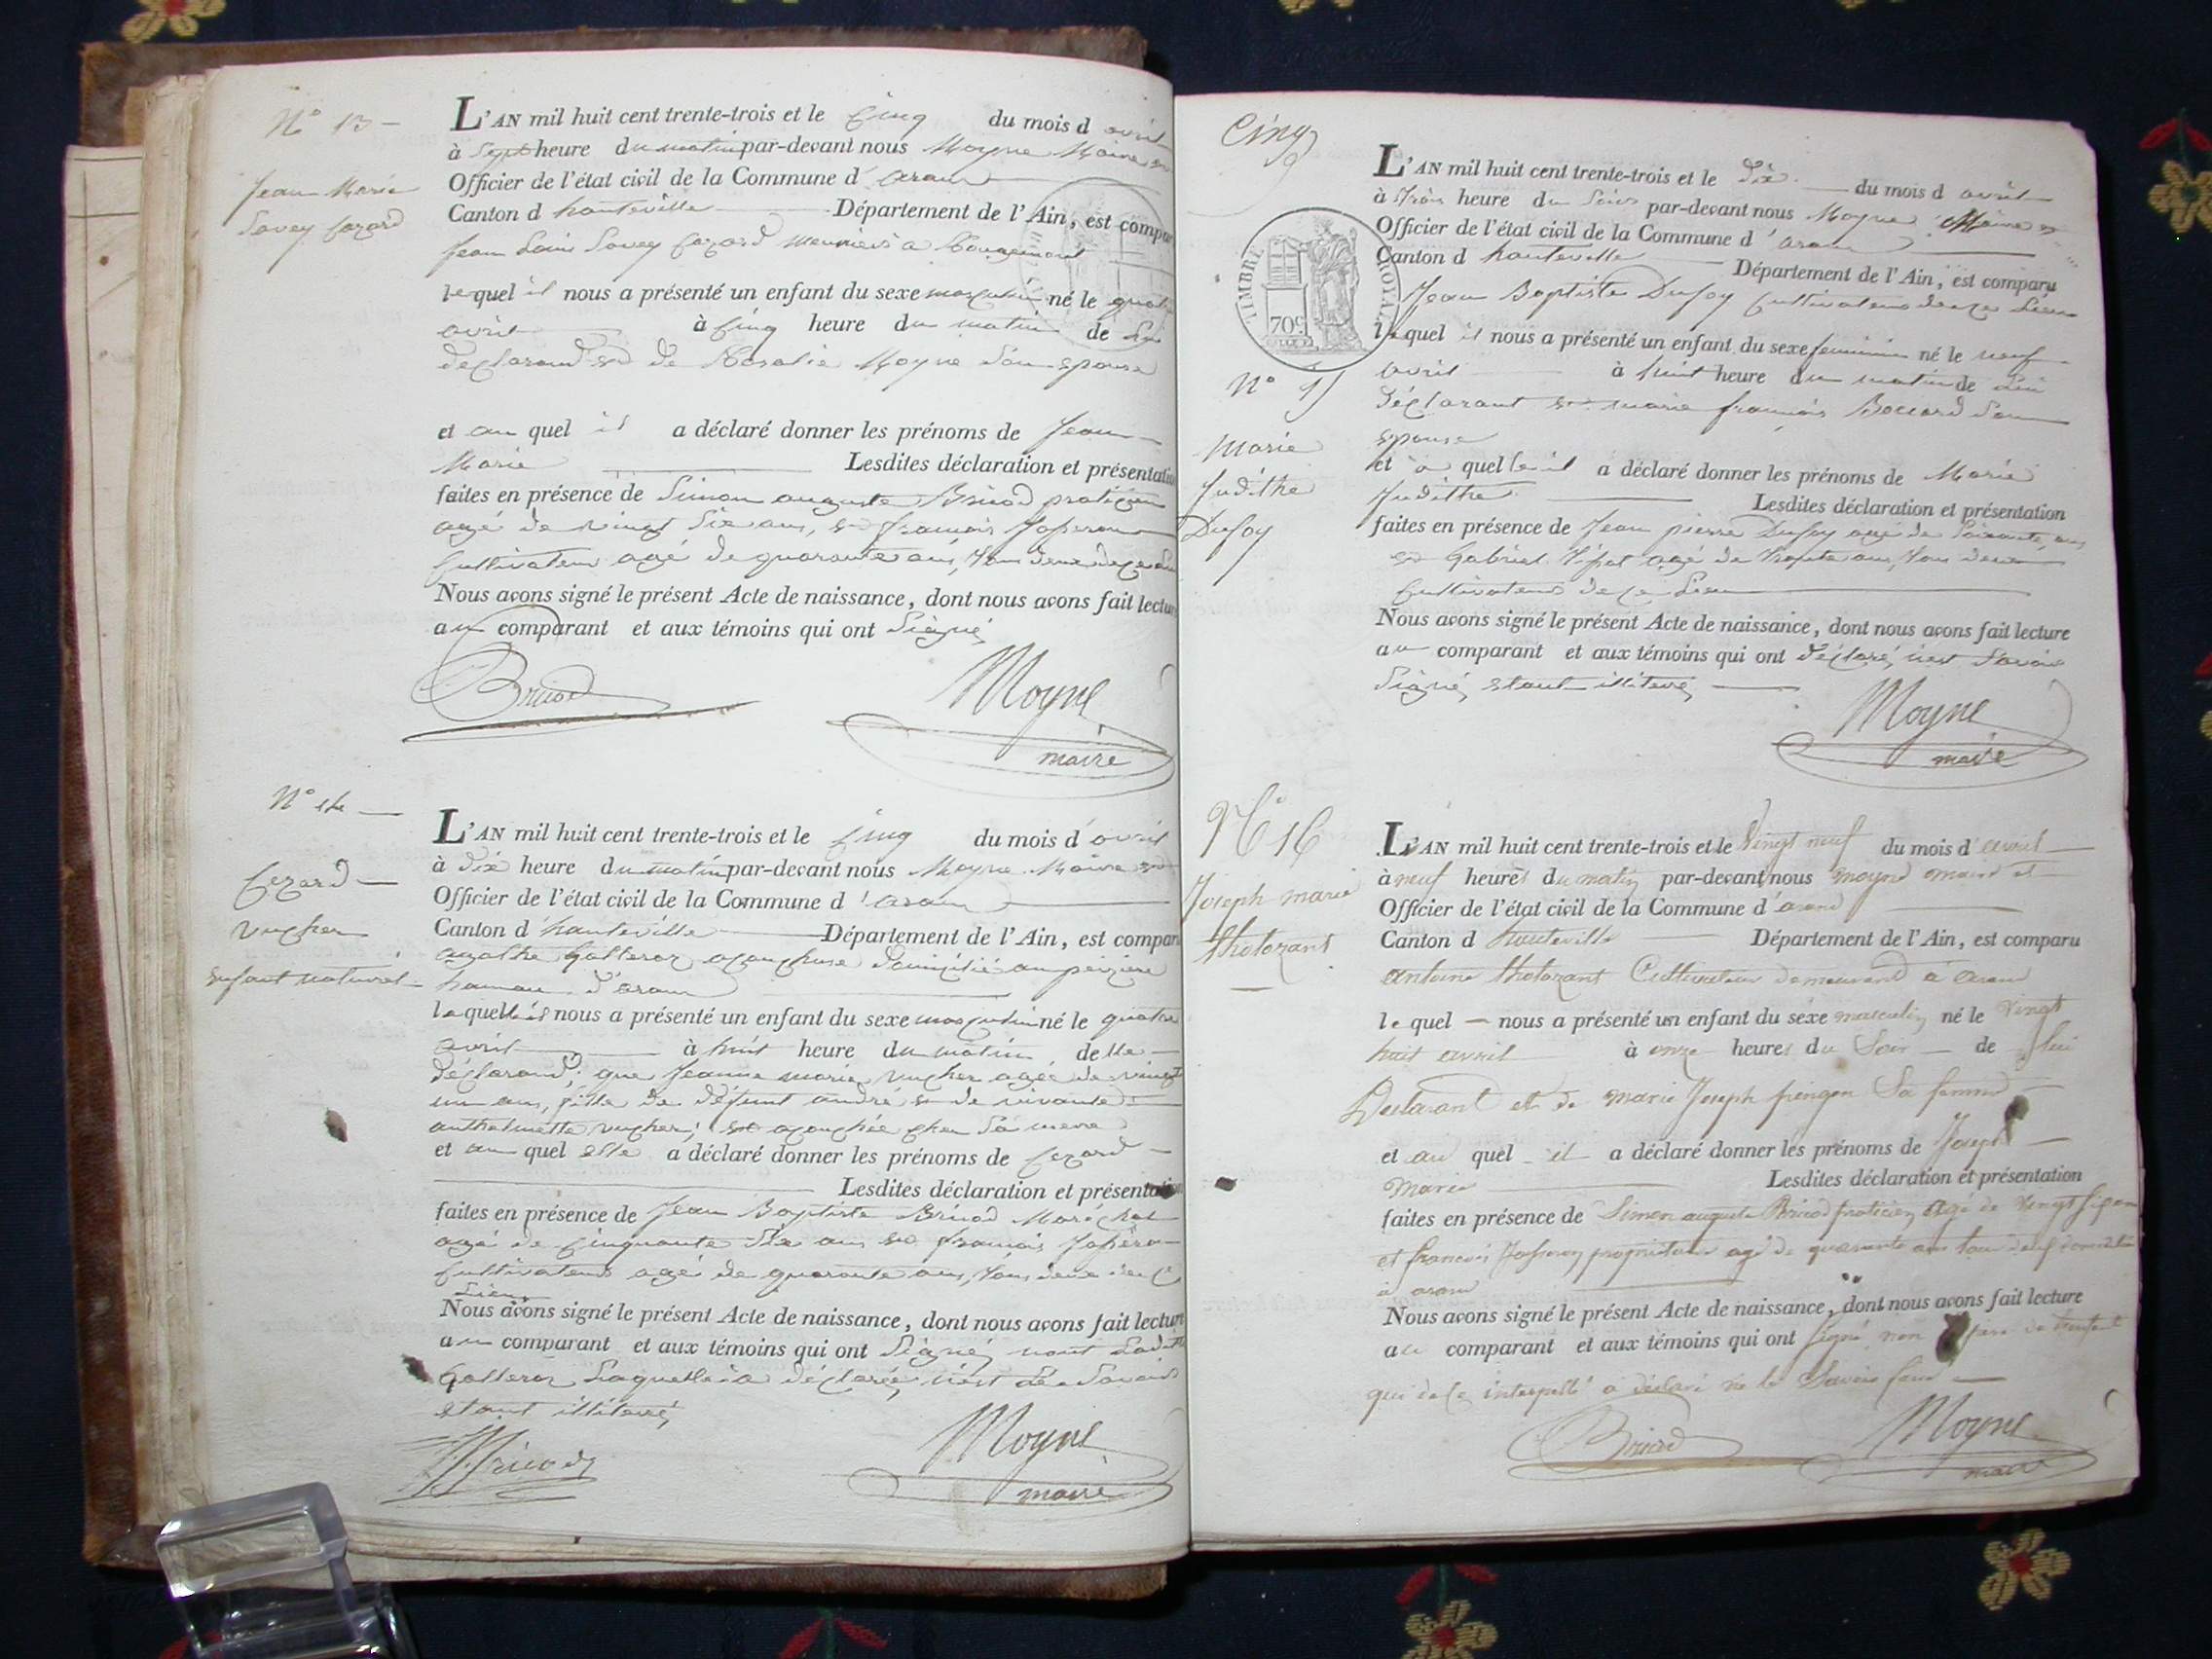 N° 13 -
Jean Marie
Savey Cazard
L'AN mil huit cent trente-trois et le cinq du mois d avril
à Sept heure du matin par-devant nous Moyne Maire et
Officier de l'état civil de la Commune d' aran
Canton d hauteville Département de l'Ain, est compar
Jean Savey Cazard meunier a Rougemont
lequel il nous a présenté un enfant du sexe masculin né le quatre
avril à cinq heure du matin de lui
declarand et de Rosalie Moyne son epouse
et au quel il a déclaré donner les prénoms de Jean
Marie Lesdites déclaration et présentation
faites en présence de Simon auguste Bricod praticien
agé de vingt Six ans, et françois Josseron
Cultivateur agé de quarante ans, tous deux de ce lieu
Nous avons signé le présent Acte de naissance, dont nous avons fait lecture
au comparant et aux témoins qui ont Signé
Bricod Moyne
maire
N° 14
Cezard
vucher
enfant naturel
L'AN mil huit cent trente-trois et le cinq du mois d'avril
à dix heure du matin par-devant nous Moyne Maire et
Officier de l'état civil de la Commune d'aran
Canton d'hauteville Département de l'Ain, est compar
agathe Galleron acouchuse domicilié
hamau d'aran
laquelle nous a présenté un enfant du sexe masculin né le quatre
avril à huit heure du matin, de lle
déclarand, que Jeanne marie vucher agée de vingt
un ans, fille de défunt andré et de vivante
anthelmette vucher, est acouchée chez Sa mere
et au quel elle a déclaré donner les prénoms de Cezard
Lesdites déclaration et présentation
faites en présence de Jean Baptiste Bricod Maréchal
agé de Cinquante Six ans et françois Josseron
Cultivateur agé de quarante ans, tous deux de ce
Lieu
Nous avons signé le présent Acte de naissance, dont nous avons fait lecture
au comparant et aux témoins qui ont Signé, nont Ladite
Galleron Laquelle a déclaré n'est Le Savoir
etant illiteré
Bricod Moyne
maire
Cinq
TIMBRE ROYAL
70c
N° 15
Marie
Judithe
Dufoy
L'AN mil huit cent trente-trois et le dix du mois d avril
à Trois heure du Soir par-devant nous Moyne Maire et
Officier de l'état civil de la Commune d'aran
Canton d hauteville Département de l'Ain, est comparu
Jean Baptiste Dufoy Cultivateur de ce Lieu
lequel il nous a présenté un enfant du sexe feminin né le neuf
avril à huit heure du matin de Lui
déclarant et marie françois Boccard Son
epouse
et a quelle il a déclaré donner les prénoms de Marie
Judithe Lesdites déclaration et présentation
faites en présence de Jean pierre Dufoy agé de Soixante ans
et Gabriel agé de trente ans, tous deux
Cultivateurs de ce Lieu
Nous avons signé le présent Acte de naissance, dont nous avons fait lecture
au comparant et aux témoins qui ont déclaré n'est Savoir
Signé etant illiteré
Moyne
maire
N° 16
Joseph marie
thotozant
L'AN mil huit cent trente-trois et le Vingt neuf du mois d'avril
à neuf heures du matin par-devant nous moyne maire et
Officier de l'état civil de la Commune d'arand
Canton d hauteville Département de l'Ain, est comparu
antoine thotozant Cultivateur demeurant à arand
lequel nous a présenté un enfant du sexe masculin né le Vingt
huit avril à onze heures du Soir de Lui
Declarant et de marie Joseph pingon Sa femme
et au quel il a déclaré donner les prénoms de Joseph
Marie Lesdites déclaration et présentation
faites en présence de Simon auguste Bricod praticien agé de Vingt Six ans
et francois Josseron propriétaire agé de quarante ans tous deux domiciliés
à aran
Nous avons signé le présent Acte de naissance, dont nous avons fait lecture
au comparant et aux témoins qui ont Signé non pere de l'enfant
qui de ce interpellé a déclaré ne le Savoir faire
Bricod Moyne
maire